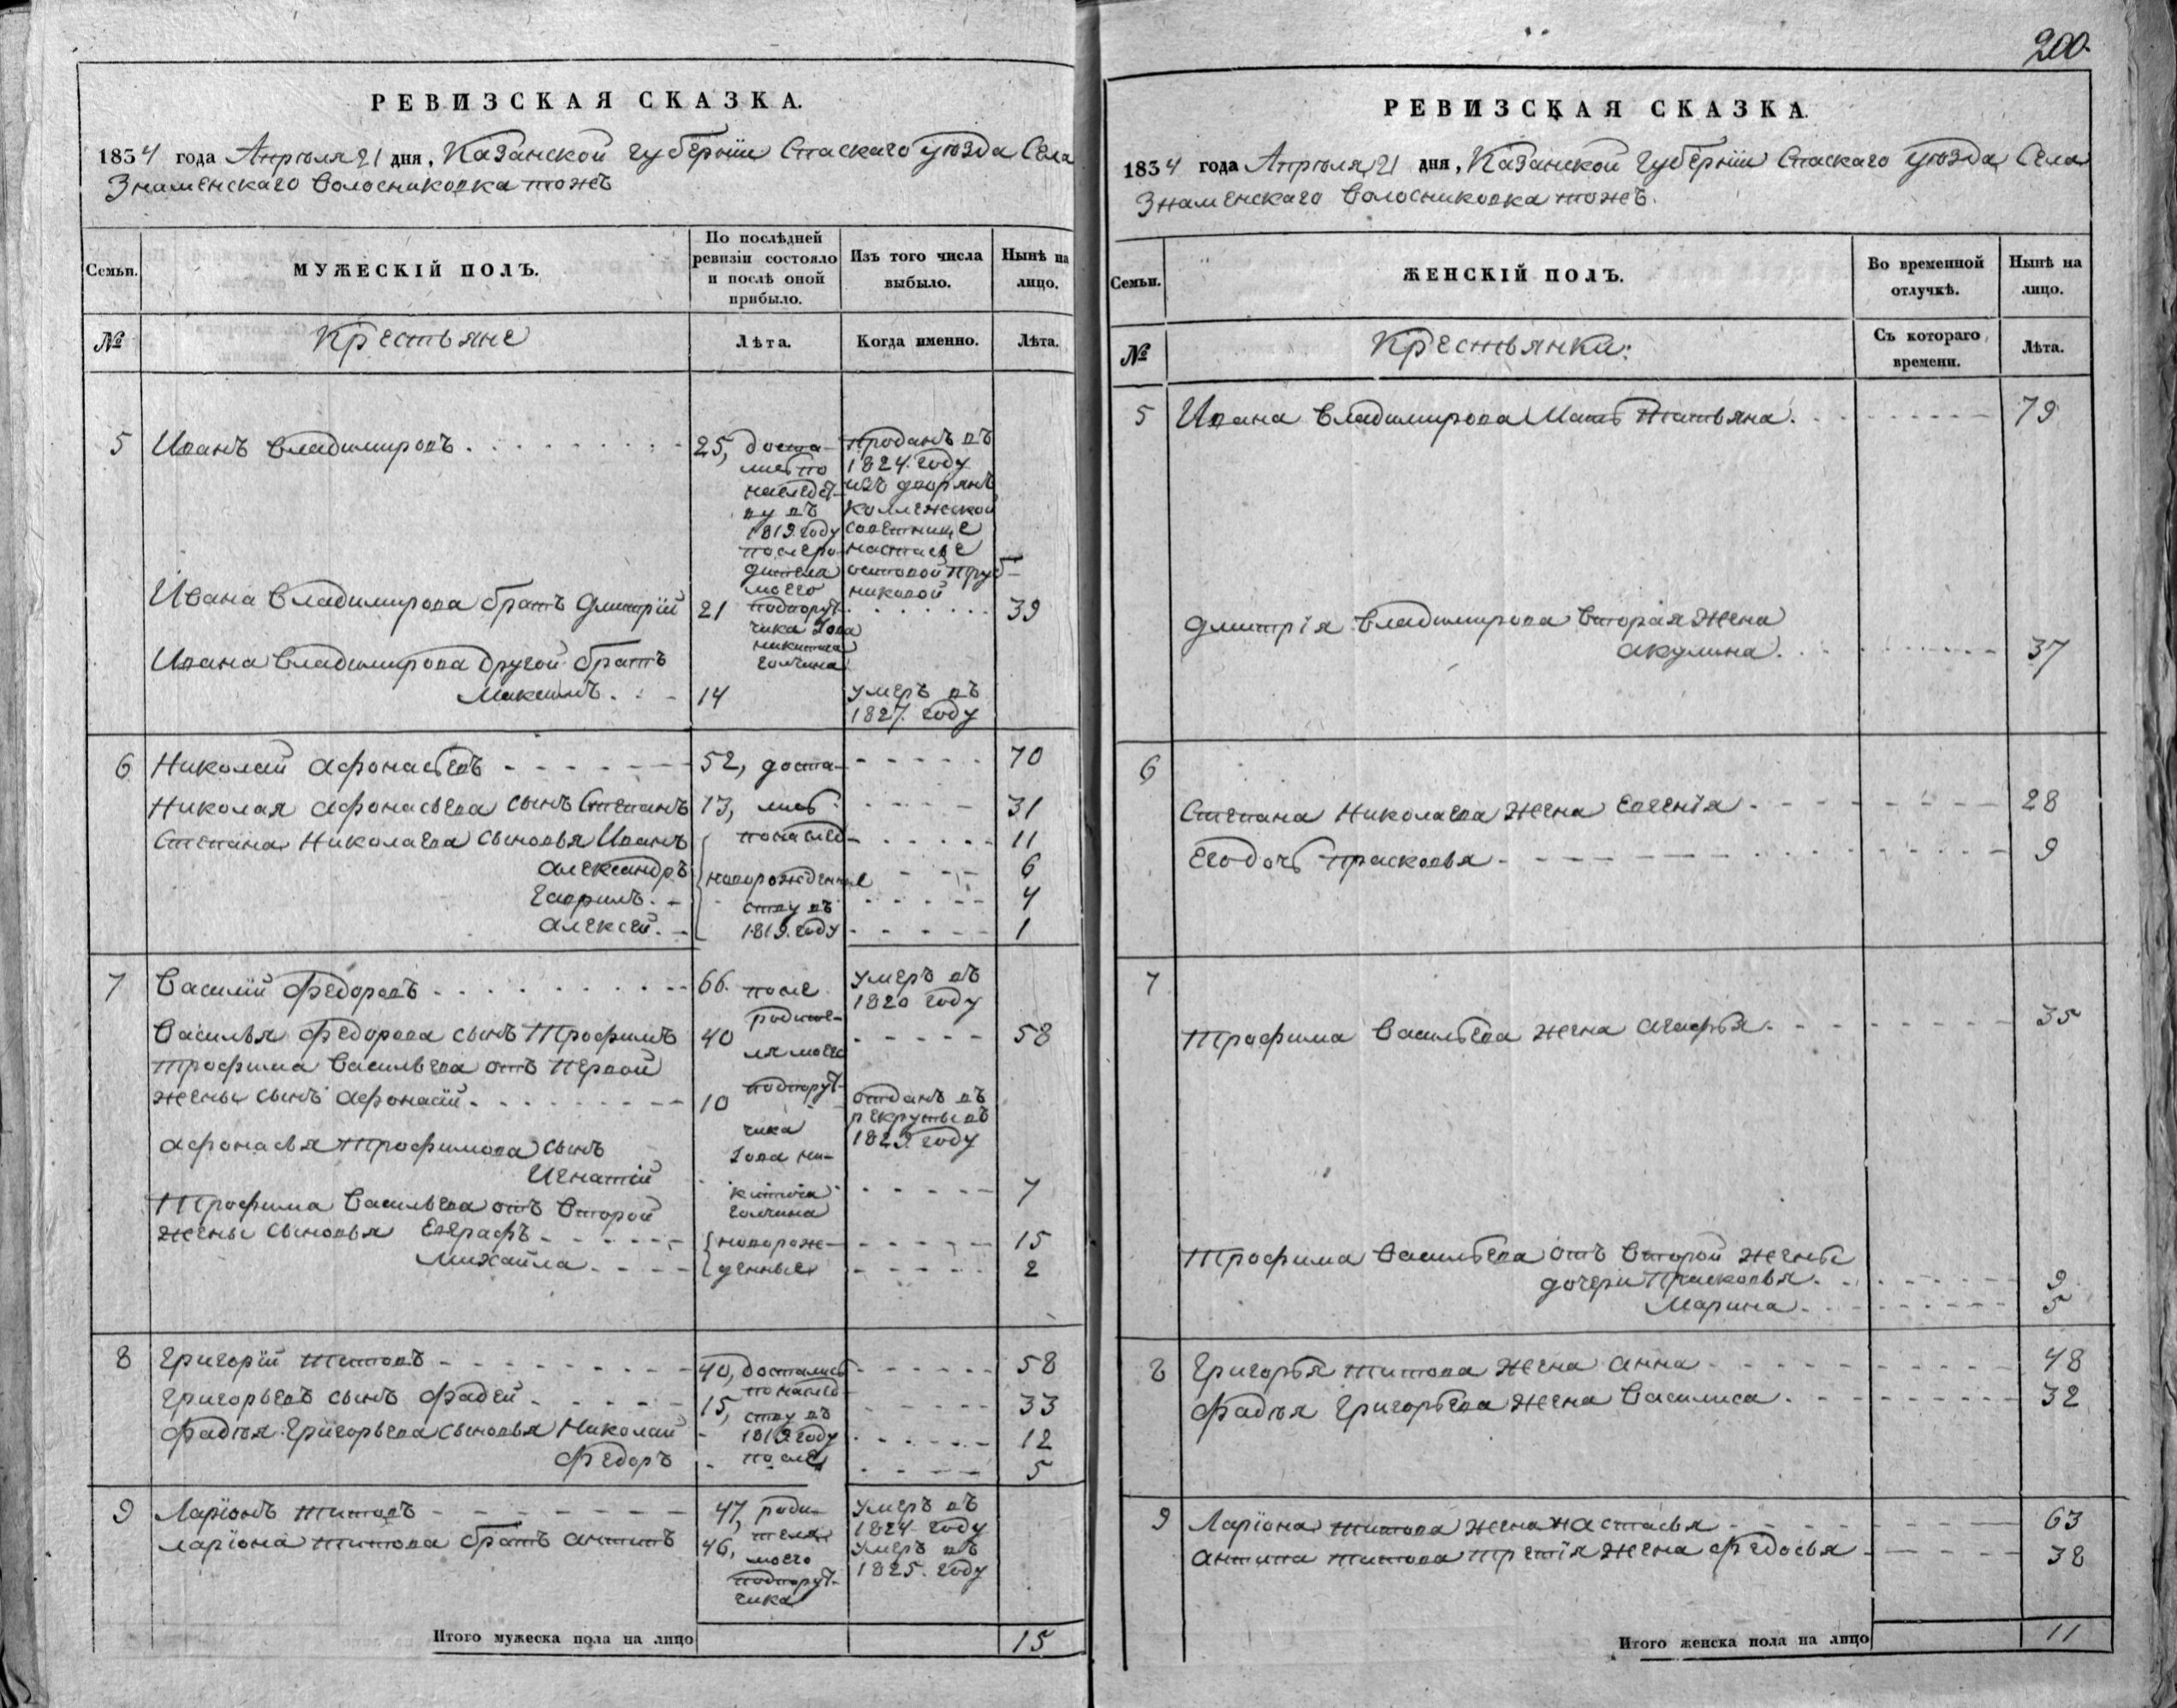 РЕВИЗСКАЯ СКАЗКА.
1834 года Апрѣля 21 дня, Казанской губерніи Спаскаго уѣзда Села
Знаменскаго Волосниковка тожъ
Семьи.
МУЖЕСКІЙ ПОЛЪ.
По послѣдней
ревизіи состояло
и послѣ оной
прибыло.
Изъ того числа
выбыло.
Нынѣ на
лицо.
№
Крестьяне
Лѣта.
Когда именно.
Лѣта.
5 Иванъ Владимировъ 25, доста- Проданъ въ
лись по 1824 году
наследст- изъ дворянъ
ву въ Коллежской
1819. году советнице
после ро- Настасье
дителя
моего никовой
Ивана Владимирова братъ Дмитрій 21 подпорут- 39
чика Іова
Никитича
Ивана Владимирова Другой братъ Голчина
Максимъ 14 умеръ въ
1827. году
6 Николай Афонасьевъ 52, доста- 70
Николая Афонасьева сынъ Степанъ 13, лись 31
Степана Николаева сыновья Иванъ по наслед- 11
Александръ новорожденные 6
Гаврилъ ству въ 4
Алексей 1819. году 1
7 Василій Федоровъ 66. после умеръ въ
1820 году
родите-
Василья Федорова сынъ Трофимъ 40 58
ля моего
Трофима Васильева отъ Первой
жены сынъ Афонасій 10 подпорут- отданъ въ
рекруты въ
чика 1829. году
Афонасья Трофимова сынъ Іова Ни-
Игнатій китича 7
Трофима Васильева отъ Второй Голчина
жены сыновья Евграфъ новорож- 15
Михайла денные 2
8 Григорій Титовъ 40, достались 58
по наслед-
Григорьевъ сынъ Фадей 15, ству въ 33
Фадѣя Григорьева сыновья Николай 1819. году 12
Федоръ после 5
9 Ларіонъ Титовъ 47, роди- умеръ въ
1824 году
Ларіона Титова братъ Антипъ 46, теля умеръ въ
моего 1825. году
подпорут-
чика
Итого мужеска пола на лицо 15
200.
РЕВИЗСКАЯ СКАЗКА.
1834 года Апрѣля 21 дня, Казанской Губерніи Спаскаго уѣзда Села
Знаменскаго Волосниковка тожъ.
Семьи.
ЖЕНСКІЙ ПОЛЪ.
Во временной
отлучкѣ.
Нынѣ на
лицо.
№
Крестьянки:
Съ котораго
времени.
Лѣта.
5 Ивана Владимирова Мать Татьяна. 79
Дмитрія Владимирова Вторая жена
Акулина. 37
6
Степана Николаева жена Евгенія 28
Его дочь Прасковья 9
7
Трофима Васильева жена Агафья 35
Трофима Васильева отъ Второй жены
дочери Прасковья 9
Марина 5
8 Григорья Титова жена Анна 48
Фадѣя Григорьева жена Василиса 32
9 Ларіона Титова жена Настасья 63
Антипа Титова третія жена Федосья 38
Итого женска пола на лицо 11